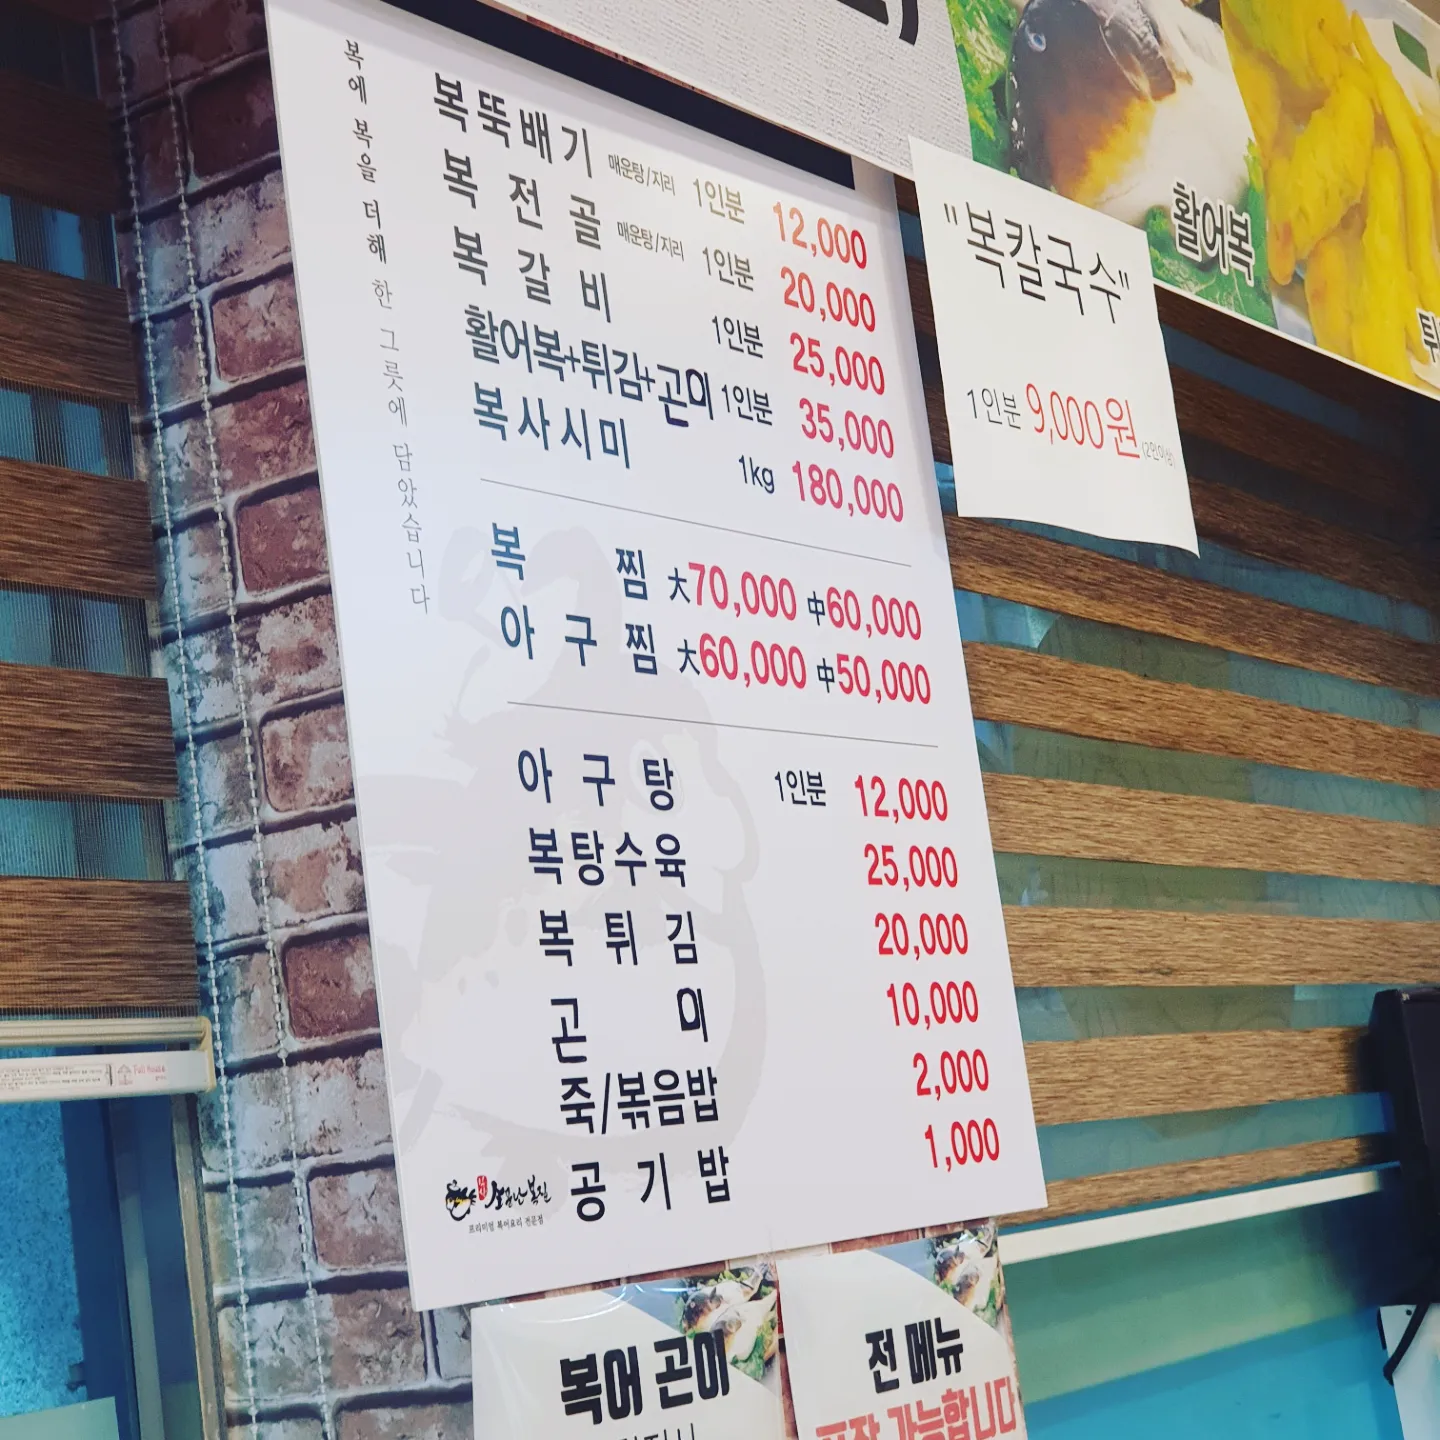 복에 복을 더해 한 그릇에 담았습니다
복뚝배기 매운탕/지리 1인분 12,000
복전골 매운탕/지리 1인분 20,000
복갈비 1인분 25,000
활어복+튀김+곤이 1인분 35,000
복사시미 1kg 180,000
복찜 大70,000 中60,000
아구찜 大60,000 中50,000
아구탕 1인분 12,000
복탕수육 25,000
복튀김 20,000
곤이 10,000
죽/볶음밥 2,000
공기밥 1,000
소문난복집
프리미엄 복어요리 전문점
"복칼국수"
1인분 9,000원 (2인이상)
활어복
튀
Full house
복어 곤이
전 메뉴
포장 가능합니다